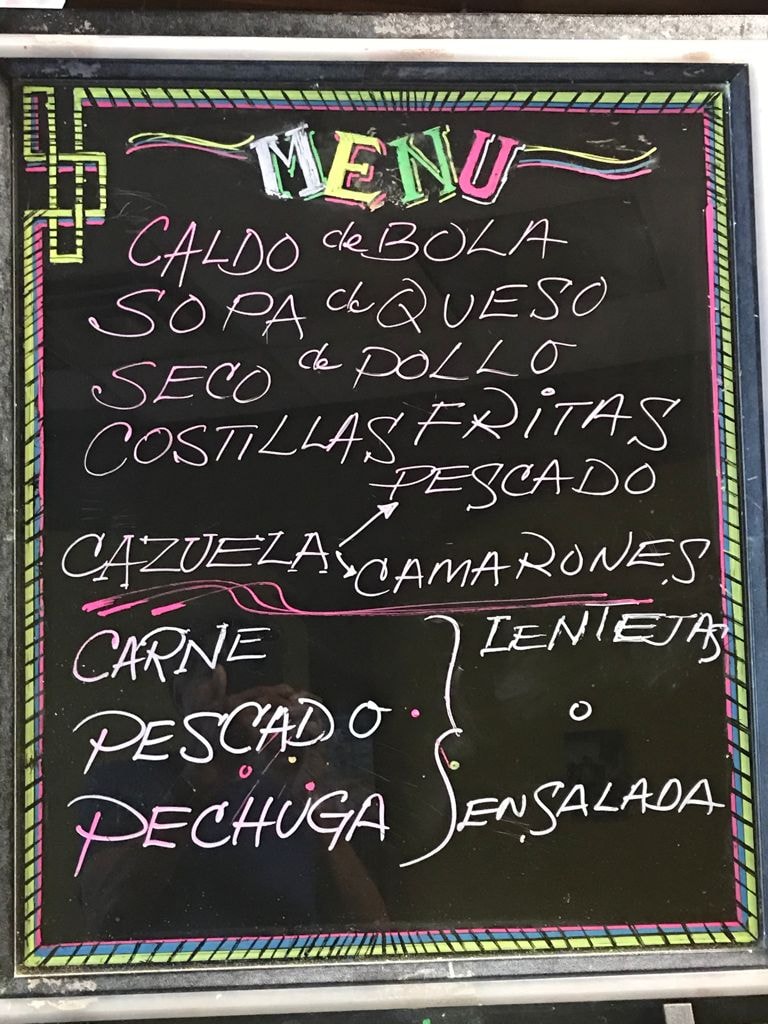 MENU
CALDO de BOLA
SOPA de QUESO
SECO de POLLO
COSTILLAS FRITAS
PESCADO
CAZUELA
CAMARONES
CARNE
LENTEJAS
PESCADO
o
PECHUGA
ENSALADA